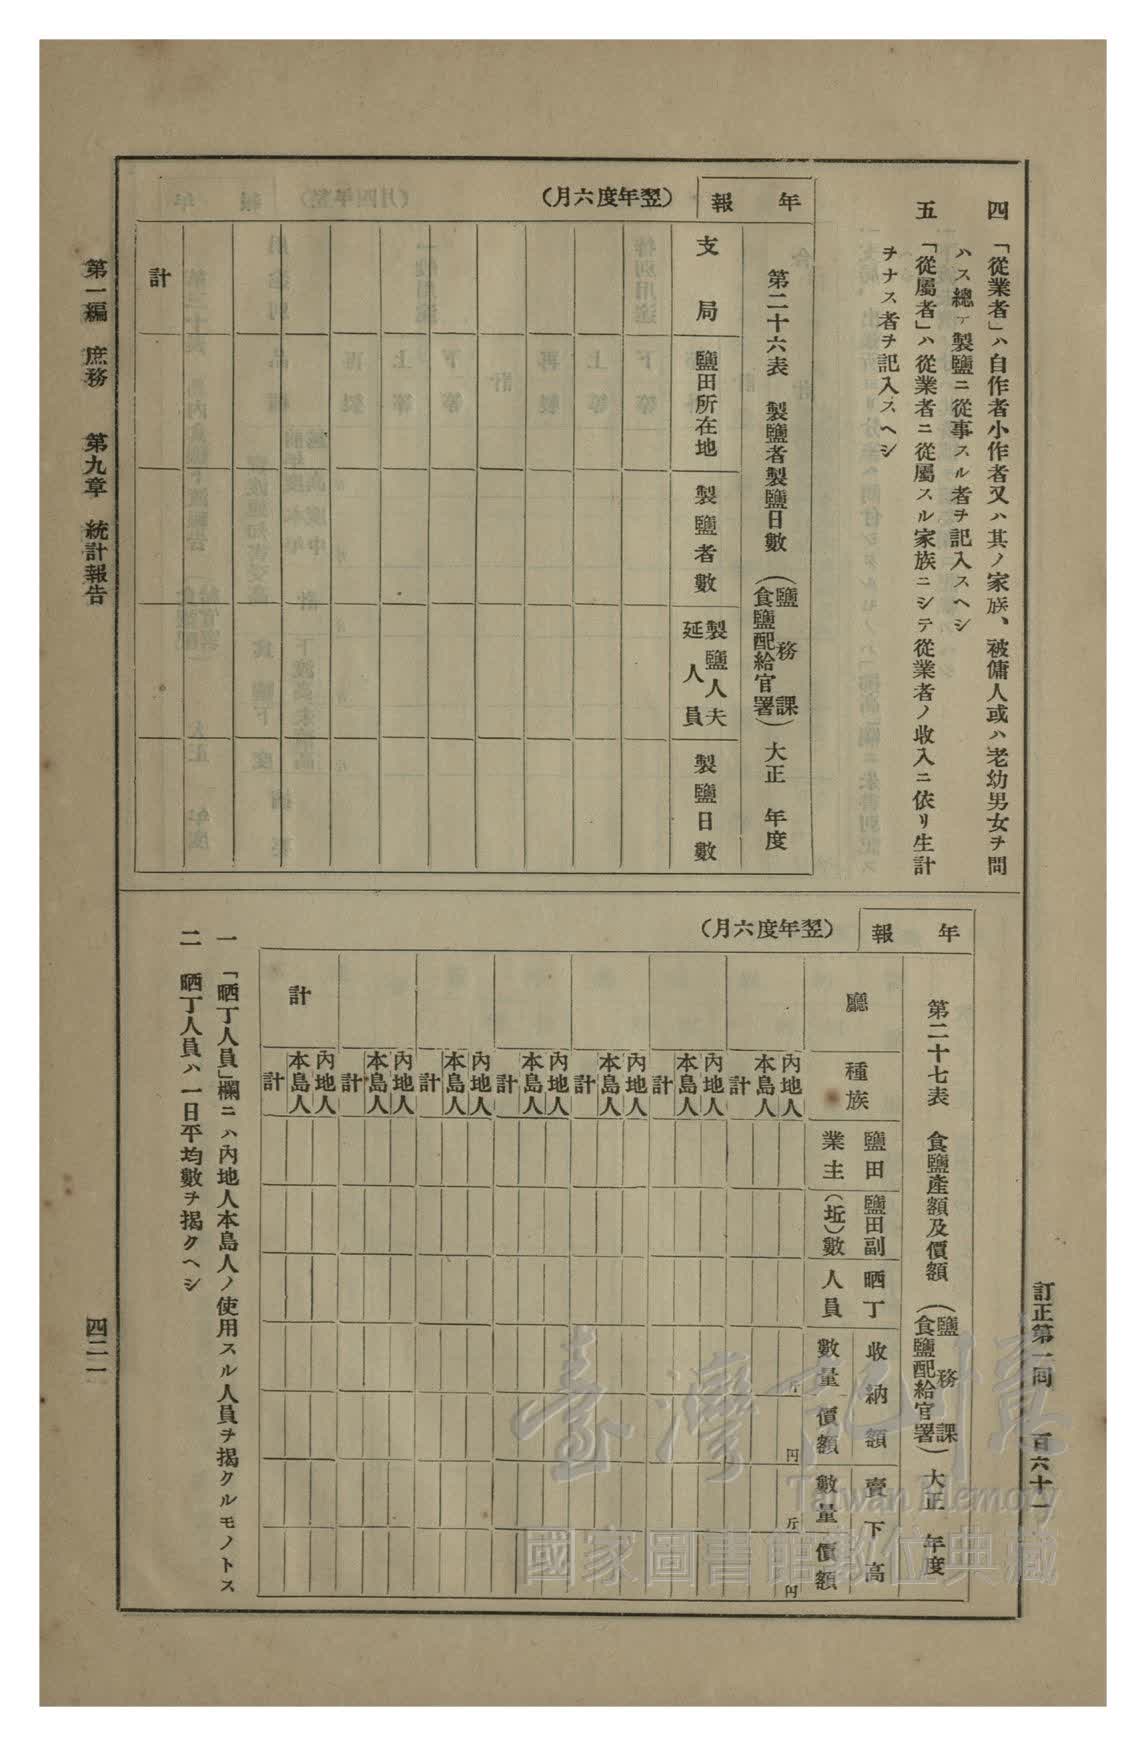 訂正第一回　百六十一
四　「從業者」ハ自作者小作者又ハ其ノ家族、被傭人或ハ老幼男女ヲ問
ハス總テ製鹽ニ從事スル者ヲ記入スヘシ
五　「從屬者」ハ從業者ニ從屬スル家族ニシテ從業者ノ收入ニ依リ生計
ヲナス者ヲ記入スヘシ
年　報　（翌年度六月）
第二十六表　製鹽者製鹽日數　（鹽務課　食鹽配給官署）　大正　年度
支局
鹽田所在地
製鹽者數
製鹽人夫延人員
製鹽日數
計
年　報　（翌年度六月）
第二十七表　食鹽產額及價額　（鹽務課　食鹽配給官署）　大正　年度
廳
種族
鹽田業主
鹽田副（坵）數
晒丁人員
收納額
數量
價額
賣下高
數量
價額
內地人
本島人
計
斤
円
斤
円
內地人
本島人
計
內地人
本島人
計
內地人
本島人
計
內地人
本島人
計
內地人
本島人
計
計
內地人
本島人
計
一　「晒丁人員」欄ニハ內地人本島人ノ使用スル人員ヲ揭クルモノトス
二　晒丁人員ハ一日平均數ヲ揭クヘシ
第一編　庶務　第九章　統計報告
四二一
臺灣記憶
Taiwan Memory
國家圖書館數位典藏